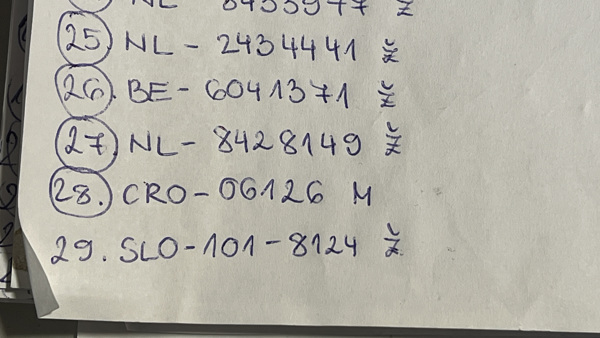 NL 8455977 Ž
25. NL - 2434441 Ž
26. BE - 6041371 Ž
27. NL - 8428149 Ž
28. CRO - 06126 M
29. SLO - 101 - 8124 Ž